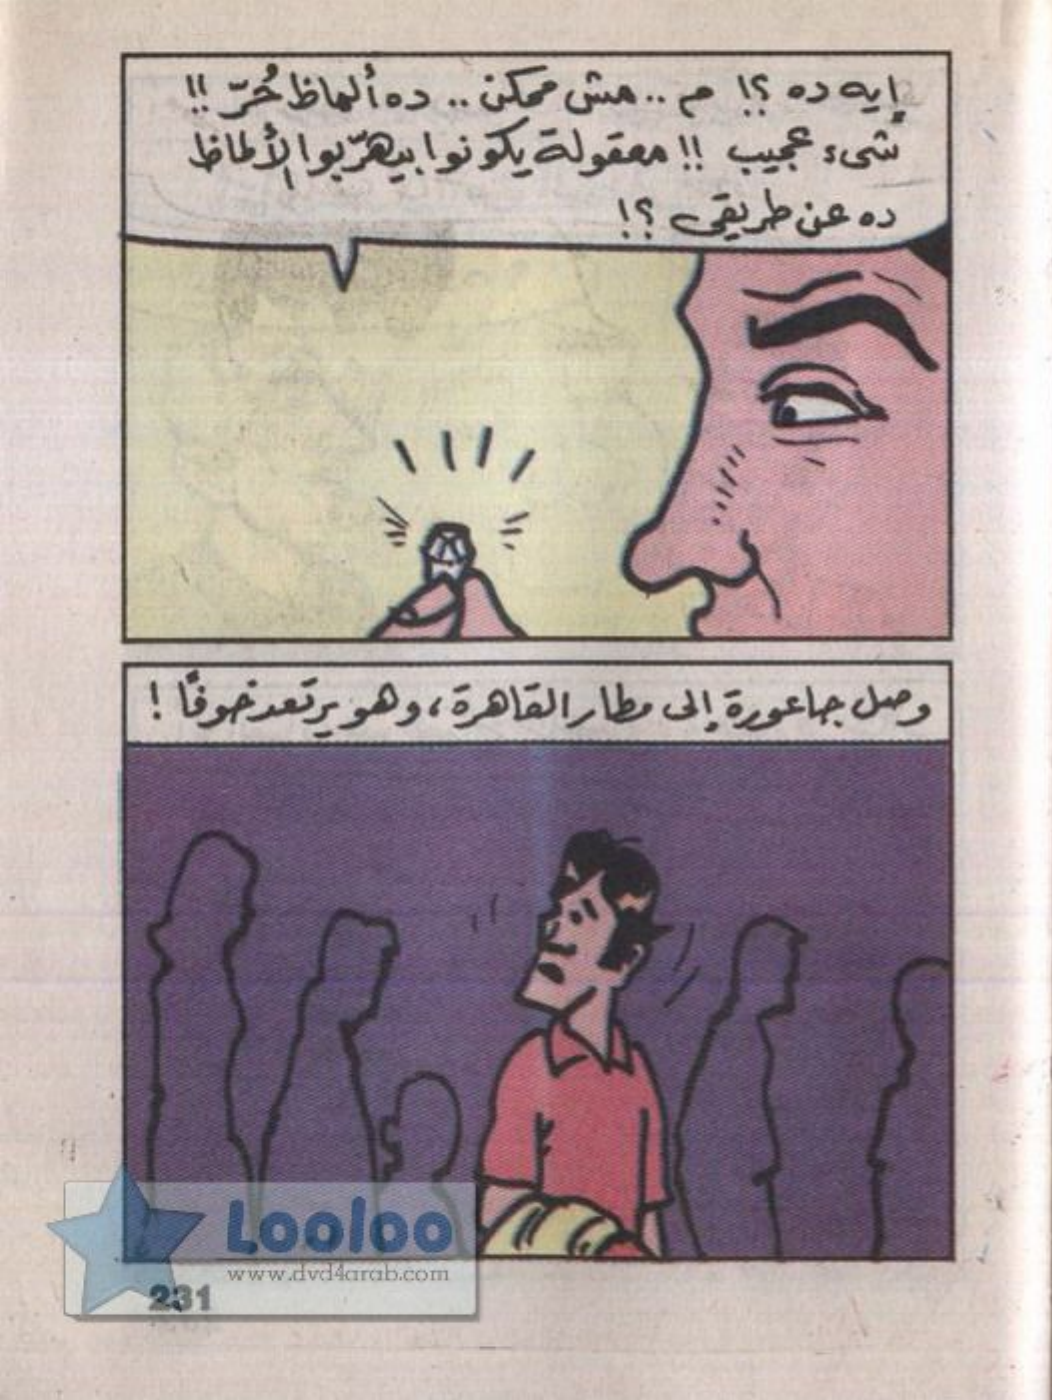 إيه ده ؟! م .. مش ممكن .. ده ألماظ حُرّ !!
شىء عجيب !! معقولة يكونوا بيهرّبوا الألماظ
ده عن طريقى ؟!
وصل جاعورة إلى مطار القاهرة ، وهو يرتعد خوفًا !
Looloo
www.dvd4arab.com
231